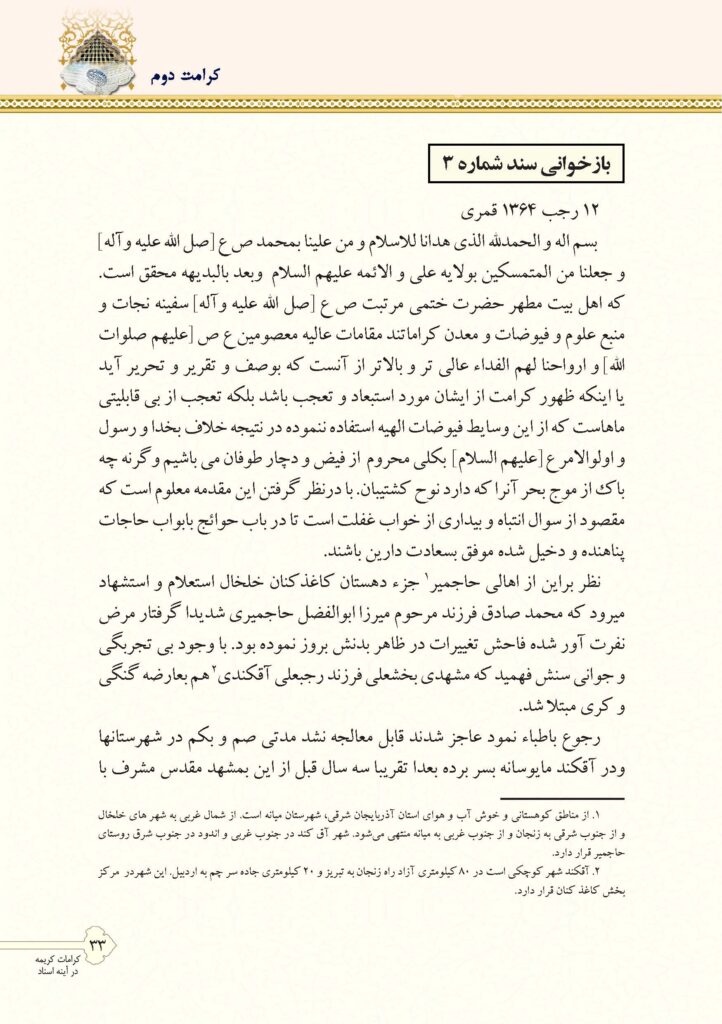 کرامت دوم
بازخوانی سند شماره ۳
۱۲ رجب ۱۳۶۴ قمری
بسم اله و الحمدلله الذی هدانا للاسلام و من علینا بمحمد ص ع [صل الله علیه وآله]
و جعلنا من المتمسکین بولایه علی و الائمه علیهم السلام وبعد بالبدیهه محقق است.
که اهل بیت مطهر حضرت ختمی مرتبت ص ع [صل الله علیه وآله] سفینه نجات و
منبع علوم و فیوضات و معدن کراماتند مقامات عالیه معصومین ع ص [علیهم صلوات
الله] و ارواحنا لهم الفداء عالی تر و بالاتر از آنست که بوصف و تقریر و تحریر آید
یا اینکه ظهور کرامت از ایشان مورد استبعاد و تعجب باشد بلکه تعجب از بی قابلیتی
ماهاست که از این وسایط فیوضات الهیه استفاده ننموده در نتیجه خلاف بخدا و رسول
و اولوالامر ع [علیهم السلام] بکلی محروم از فیض و دچار طوفان می باشیم وگرنه چه
باک از موج بحر آنرا که دارد نوح کشتیبان. با درنظر گرفتن این مقدمه معلوم است که
مقصود از سوال انتباه و بیداری از خواب غفلت است تا در باب حوائج بابواب حاجات
پناهنده و دخیل شده موفق بسعادت دارین باشند.
نظر براین از اهالی حاجمیر۱ جزء دهستان کاغذکنان خلخال استعلام و استشهاد
میرود که محمد صادق فرزند مرحوم میرزا ابوالفضل حاجمیری شدیدا گرفتار مرض
نفرت آور شده فاحش تغییرات در ظاهر بدنش بروز نموده بود. با وجود بی تجربگی
و جوانی سنش فهمید که مشهدی بخشعلی فرزند رجبعلی آقکندی۲ هم بعارضه گنگی
و کری مبتلا شد.
رجوع باطباء نمود عاجز شدند قابل معالجه نشد مدتی صم و بکم در شهرستانها
ودر آقکند مایوسانه بسر برده بعدا تقریبا سه سال قبل از این بمشهد مقدس مشرف با
۱. از مناطق کوهستانی و خوش آب و هوای استان آذربایجان شرقی، شهرستان میانه است. از شمال غربی به شهر های خلخال
و از جنوب شرقی به زنجان و از جنوب غربی به میانه منتهی می‌شود. شهر آق کند در جنوب غربی و اندود در جنوب شرق روستای
حاجمیر قرار دارد.
۲. آقکند شهر کوچکی است در ۸۰ کیلومتری آزاد راه زنجان به تبریز و ۲۰ کیلومتری جاده سر چم به اردبیل. این شهردر مرکز
بخش کاغذ کنان قرار دارد.
۳۳
کرامات کریمه
در آینه اسناد